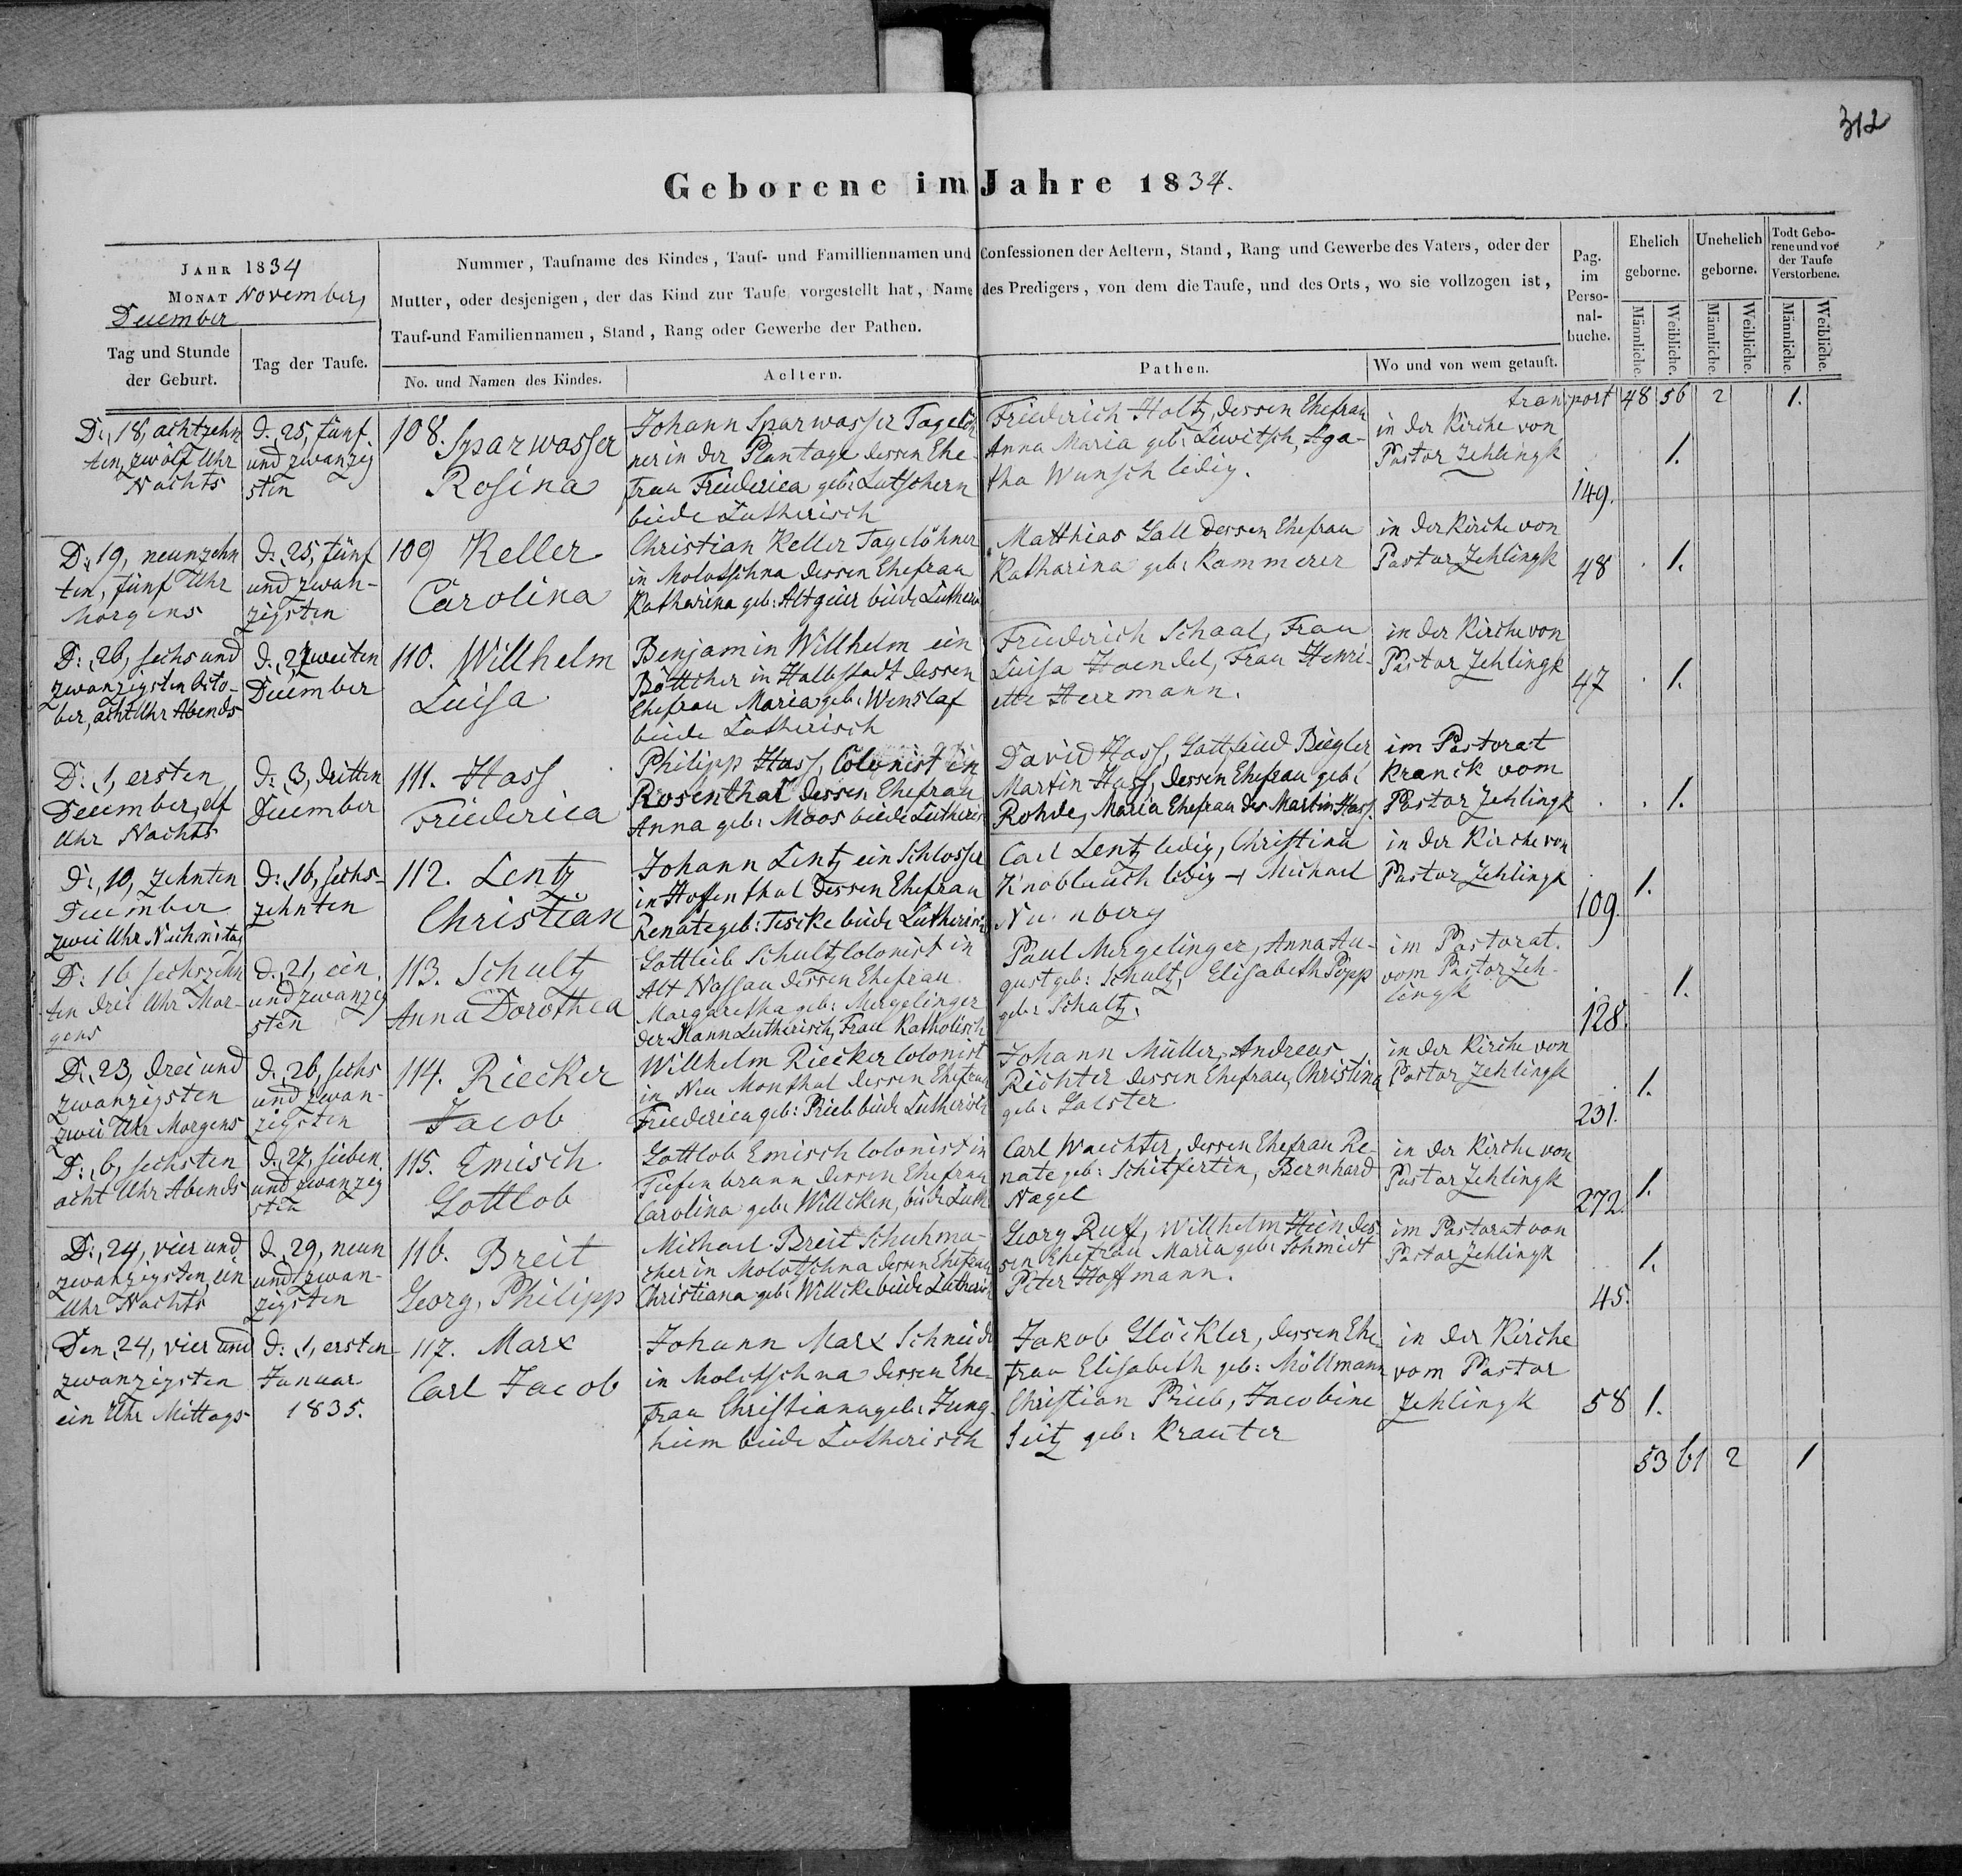 312
Geborene im Jahre 1834.
JAHR 1834
MONAT November,
December
Nummer, Taufname des Kindes, Tauf- und Familliennamen und Confessionen der Aeltern, Stand, Rang und Gewerbe des Vaters, oder der
Mutter, oder desjenigen, der das Kind zur Taufe vorgestellt hat, Name des Predigers, von dem die Taufe, und des Orts, wo sie vollzogen ist,
Tauf-und Familiennamen, Stand, Rang oder Gewerbe der Pathen.
Tag und Stunde
der Geburt.
Tag der Taufe.
No. und Namen des Kindes.
Aeltern.
Pathen.
Wo und von wem getauft.
Pag.
im
Perso-
nal-
buche.
Ehelich
geborne.
Unehelich
geborne.
Todt Gebo-
rene und vor
der Taufe
Verstorbene.
Männliche.
Weibliche.
Männliche.
Weibliche.
Männliche.
Weibliche.
transport 48 56 2 1.
D:, 18, achtzehn
ten, zwölf Uhr
Nachts
d:, 25, fünf
und zwanzig
sten
108. Sparwasser
Rosina
Johann Sparwasser Tagelöh
ner in der Plantage dessen Ehe-
frau Friederica geb: Lutschern
beide Lutherisch
Friederich Holtz, dessen Ehefrau
Anna Maria geb: Lewitsch, Aga-
tha Wunsch ledig.
in der Kirche von
Pastor Zehlingk
149.
1.
D:, 19, neunzehn
ten, fünf Uhr
Morgens
d:, 25, fünf
und zwan-
zigsten
109 Keller
Carolina
Christian Keller Tagelöhner
in Molotschna dessen Ehefrau
Katharina geb: Altgeier beide Luther
Matthias Gall dessen Ehefrau
Katharina geb: Kammerer
in der Kirche von
Pastor Zehlingk
48
1.
D:, 26, sechs und
zwanzigsten Octo-
ber, acht Uhr Abends
d:, 2, zweiten
December
110. Willhelm
Luisa
Benjamin Willhelm ein
Böttcher in Halbstadt dessen
Ehefrau Maria geb: Wenslaf
beide Lutherisch
Friederich Schaal, Frau
Luisa Haendel, Frau Henri-
ette Herrmann.
in der Kirche von
Pastor Zehlingk
47
1.
D:, 1, ersten
December, elf
Uhr Nachts
d:, 3, dritten
December
111. Hass
Friederica
Philipp Hass, Colonist in
Rosenthal dessen Ehefrau
Anna geb: Moos beide Lutheris
David Hass, Gottfried Biegler
Martin Hass, dessen Ehefrau geb:
Rohde, Maria Ehefrau des Martin Hass.
im Pastorat
kranck vom
Pastor Zehlingk
1.
D:, 10, zehnten
December
zwei Uhr Nachmitag
d:, 16, sechs-
zehnten
112. Lentz
Christian
Johann Lentz ein Schlosser
in Hoffenthal dessen Ehefrau
Renate geb: Teske beide Lutherisch
Carl Lentz ledig, Christina
Knoblauch ledig Michael
in der Kirche von
Pastor Zehlingk
109.
1.
D:, 16 sechszehn
ten drei Uhr Mor-
gens
d:, 21, ein
und zwanzig
sten
113. Schultz
Anna Dorothea
Gottlieb Schultz Colonist in
Alt Nassau dessen Ehefrau
Margaretha geb: Mergelinger
der Mann Lutherisch, Frau Katholisch
Paul Mergelinger, Anna Au-
gust geb: Schultz, Elisabeth Popp
geb: Schultz.
im Pastorat.
vom Pastor Zeh-
lingk
128.
1.
D:, 23, drei und
zwanzigsten
zwei Uhr Morgens
d:, 26, sechs
und zwan-
zigsten
114. Riecker
Jacob
Willhelm Riecker Colonist
in Neu Monthal dessen Ehefrau
Friederica geb: Prieb beide Lutherisch
Johann Müller, Andreas
Richter dessen Ehefrau, Christina
geb: Galster
in der Kirche von
Pastor Zehlingk
231.
1.
D:, 6, sechsten
acht Uhr Abends
d:, 27, sieben
und zwanzig
sten
115. Emisch
Gottlob
Gottlob Emisch Colonist in
Tiefenbrunn dessen Ehefrau
Carolina geb: Willcken, beide Luth
Carl Waechter, dessen Ehefrau Re-
nate geb: Schitfertin, Bernhard
Nagel
in der Kirche von
Pastor Zehlingk
272.
1.
D:, 24, vier und
zwanzigsten, ein
Uhr Nachts
d:, 29, neun
und zwan-
zigsten
116. Breit
Georg, Philipp
Michael Breit Schuhma-
cher in Molotschna dessen Ehefrau
Christiana geb: Willcke beide Lutherisch
Georg Ruff, Willhelm Hein des-
sen Ehefrau Maria geb: Schmidt
Peter Hoffmann.
im Pastorat von
Pastor Zehlingk
45.
1.
Den, 24, vier und
zwanzigsten
ein Uhr Mittags
d:, 1, ersten
Januar
1835.
117. Marx
Carl Jacob
Johann Marx Schneide
in Molotschna dessen Ehe-
frau Christiana geb: Jung-
heim beide Lutherisch
Jakob Glöckler, dessen Ehe
frau Elisabeth geb: Möllmann
Christian Prieb, Jacobine
Seitz geb: Krauter
in der Kirche
vom Pastor
Zehlingk
58
1.
53 61 2 1